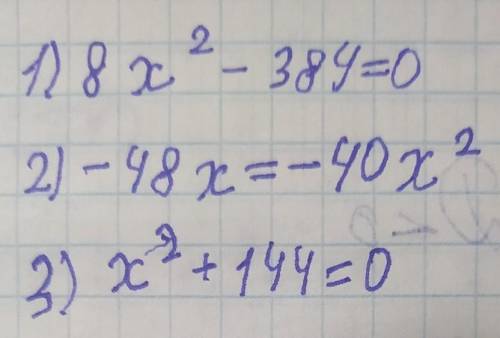 1) 8x² - 384=0
2) -48x=-40x²
3) x²+144=0